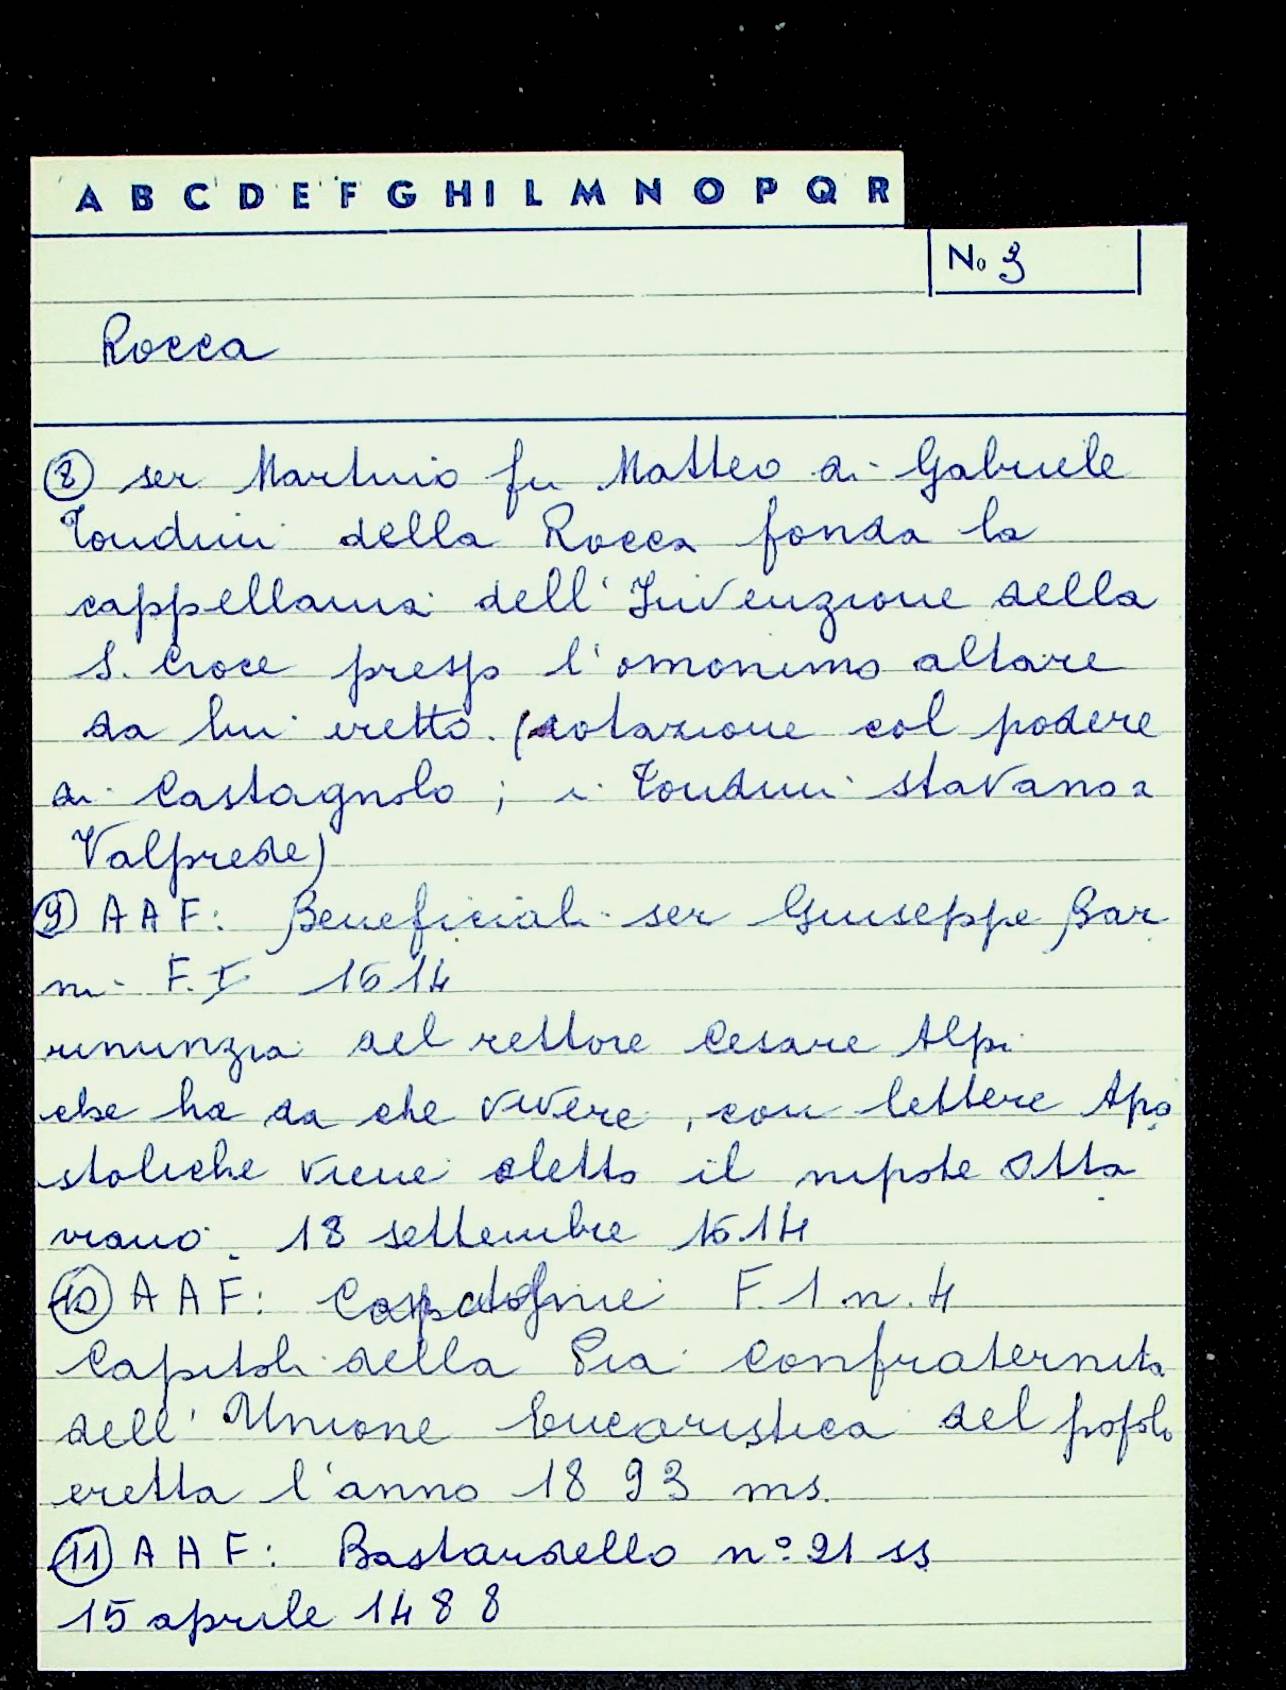 A B C D E F G H I L M N O P Q R
No 3
Rocca
8 ser Martino fu Matteo di Gabriele
Tondini della Rocca fonda la
cappellania dell'Invenzione della
S. Croce presso l'omonimo altare
da lui eretto. (dotazione col podere
di Castagnolo; i Tondini stavano a
Valprede)
9 AAF: Beneficiali ser Giuseppe Bar
ni F. I 1614
rinunzia del rettore Cesare Alpi
che ha da che vivere, con lettere Apo
stoliche viene eletto il nipote Otta
viano. 18 settembre 1614
10 AAF: F. 1 n. 4
Capitoli della Pia Confraternita
dell'Unione Eucaristica del popolo
eretta l'anno 1893 ms.
11 AAF: Bastardello n° 21 ss
15 aprile 1488